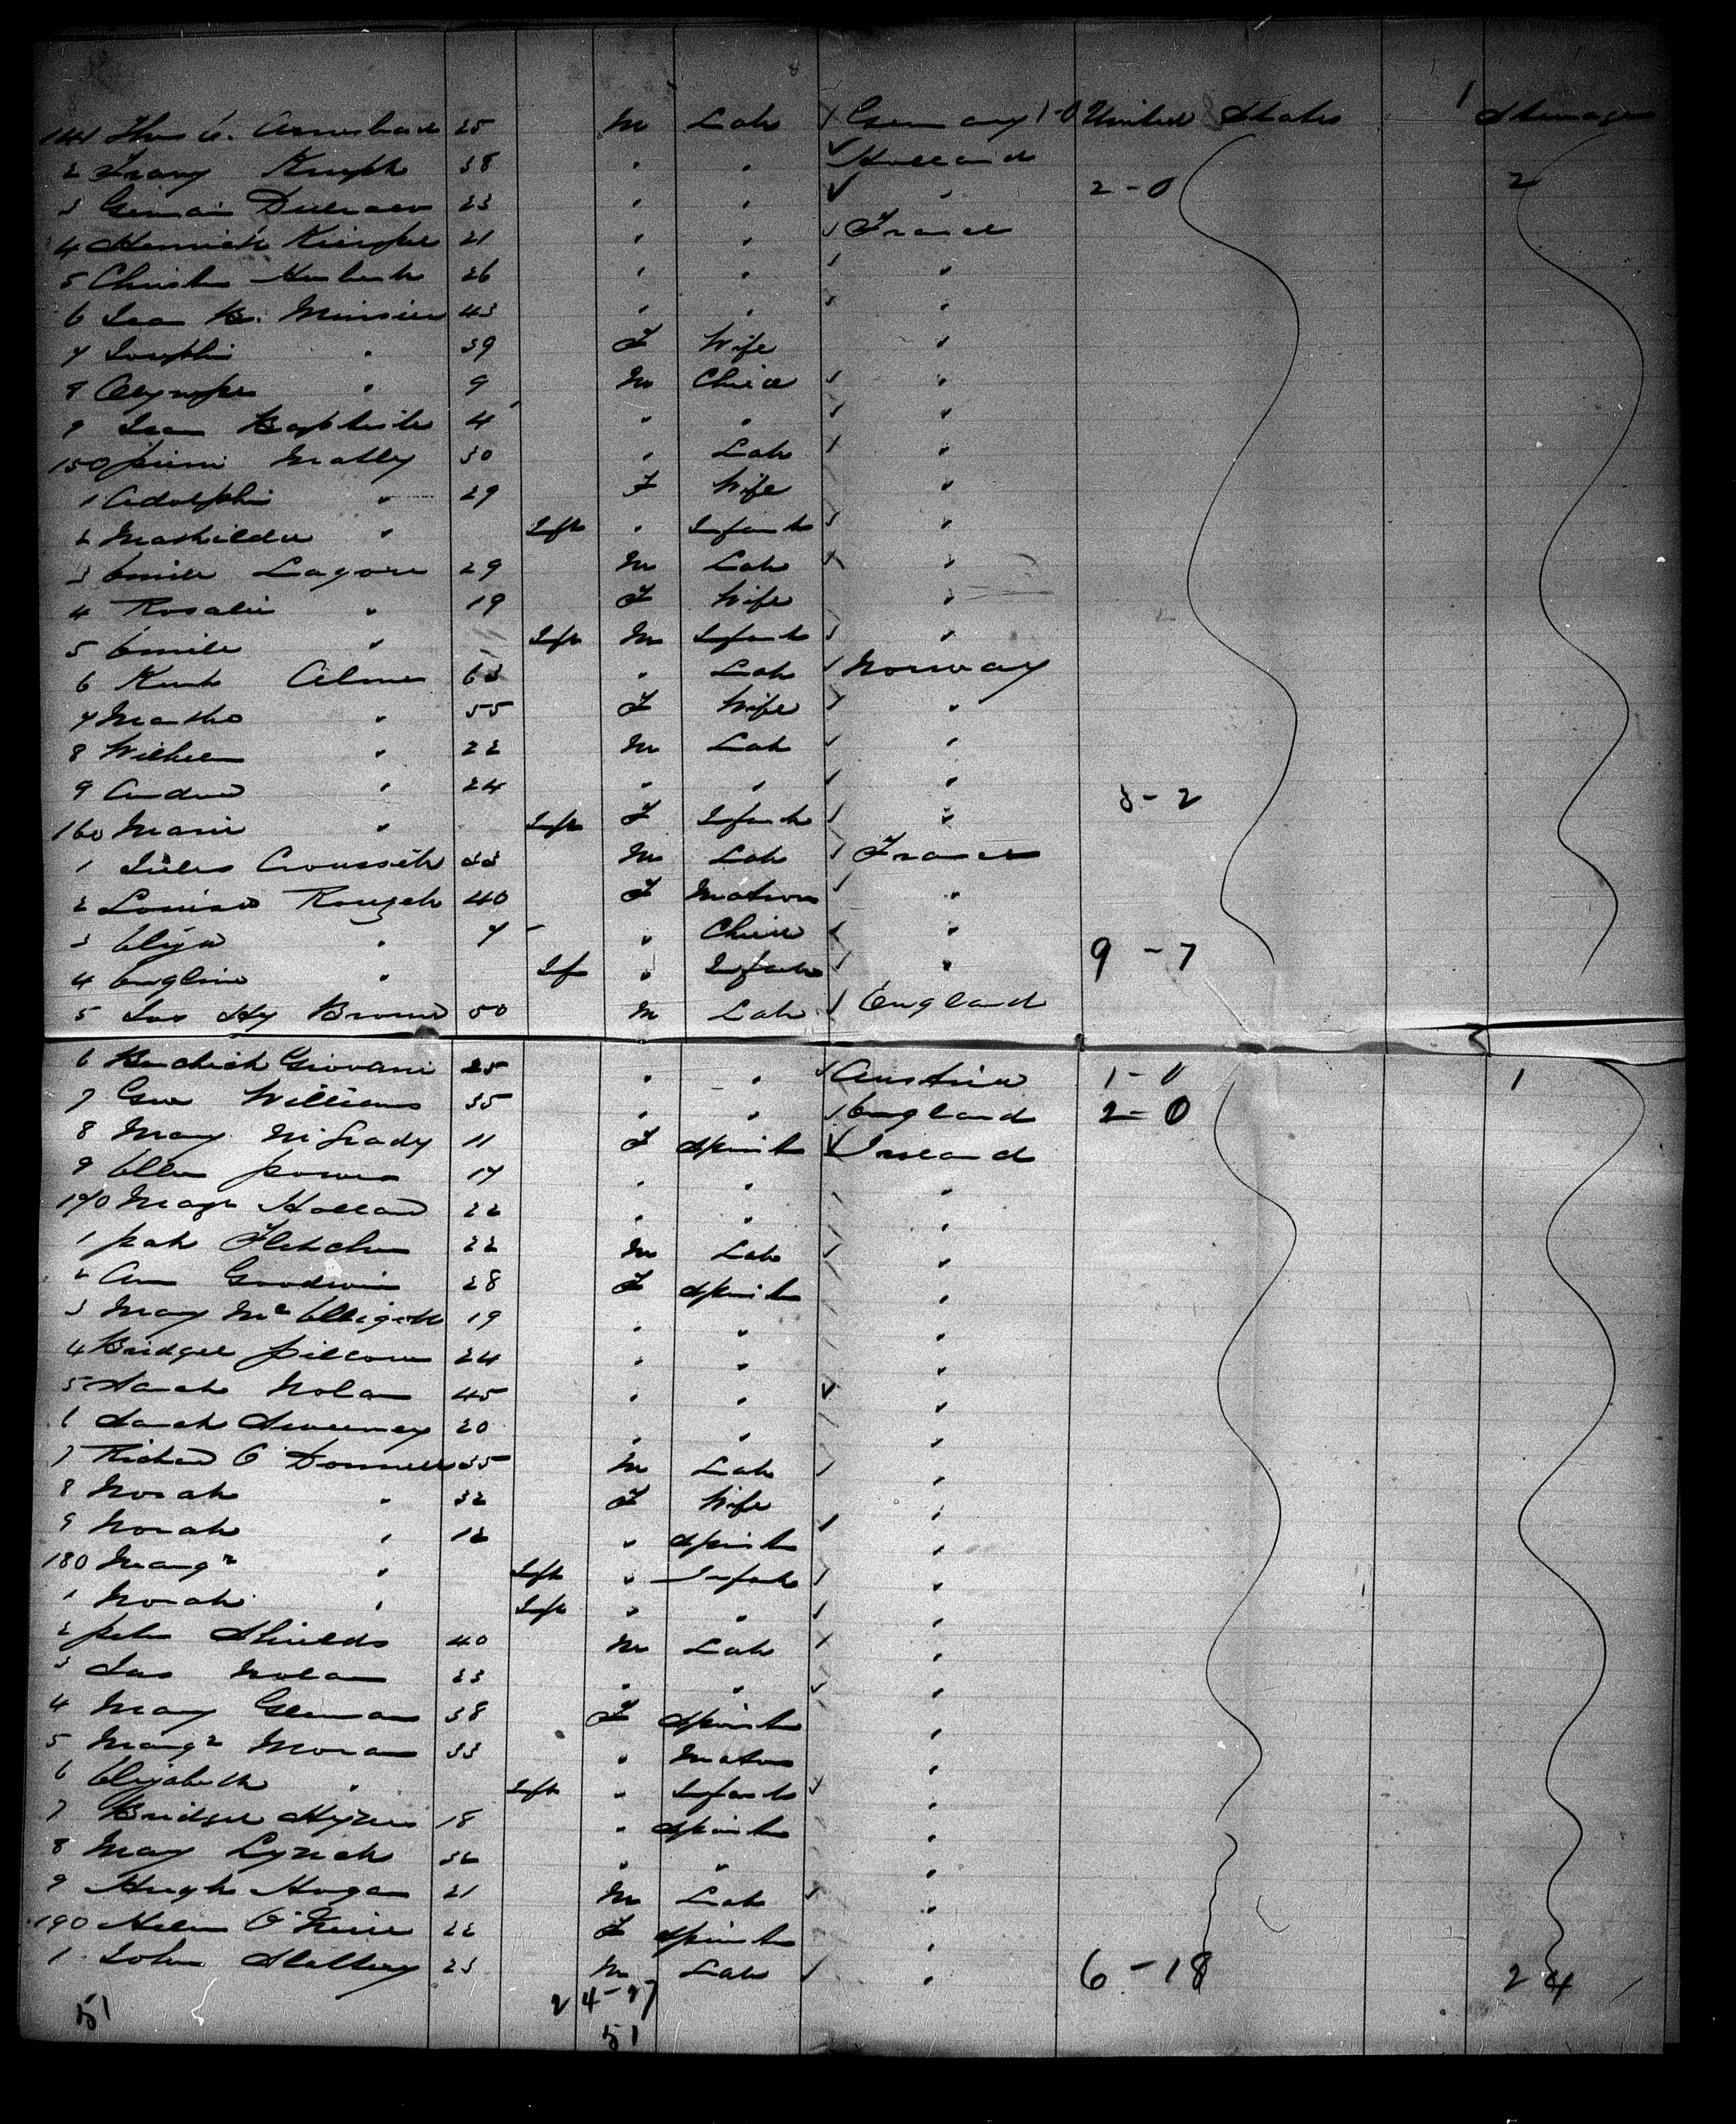 141 Thos C. 25 M Lab Germany 1-0 United States 1 Steerage
2 Franz 38 " " Holland
3 23 " " " 2-0 2
4 21 " " France
5 26 " " "
6 Jean B. 43 " " "
7 Josephi " 39 F Wife "
8 Olympe " 9 M Child "
9 Jean Baptiste 4 " " "
150 Pierri Matley 30 " Lab "
1 Adolphi " 29 F Wife "
2 Mathilda " Inft " Infant "
3 Emile Lagore 29 M Lab "
4 Rosalie " 19 F Wife "
5 Emile " Inft M Infant "
6 Knut Alme 63 " Lab Norway
7 Martha " 55 F Wife "
8 Wilhelm " 22 M Lab "
9 Andrew " 24 " " " 3-2
160 Marie " Inft F Infant "
1 Jules 33 M Lab France
2 Louise 40 F Matron "
3 Eliza " 7 " Child "
4 " Inf " Infant " 9-7
5 Jas Hy Browne 50 M Lab England
6 Giovani 25 " " Austria 1-0 1
7 Geo Williams 35 " " England 2-0
8 Mary McGrady 11 F Spinst Ireland
9 Ellen Power 17 " " "
170 Magr Holland 22 " " "
1 Pat Fletcher 22 M Lab "
2 Ann Goodwin 28 F Spinst "
3 Mary McElligott 19 " " "
4 Bridget Pillow 24 " " "
5 Sarah Nolan 45 " " "
6 Sarah Sweeney 20 " " "
7 Richard O'Donnell 35 M Lab "
8 Norah " 32 F Wife "
9 Norah " 12 " Spinst "
180 Margr " Inft " Infant "
1 Norah " Inft " " "
2 Peter Shields 40 M Lab "
3 Jas Nolan 23 " " "
4 Mary 38 F Spinst "
5 Margr Moran 33 " Matron "
6 Elizabeth " Inft " Infant "
7 Bridget Hynes 18 " Spinst "
8 Mary Lynch 32 " " "
9 Hugh Hogan 21 M Lab "
190 Helen O'Neill 22 F Spinst "
1 John Slattery 23 M Lab " 6-18 24
51 24-27
51